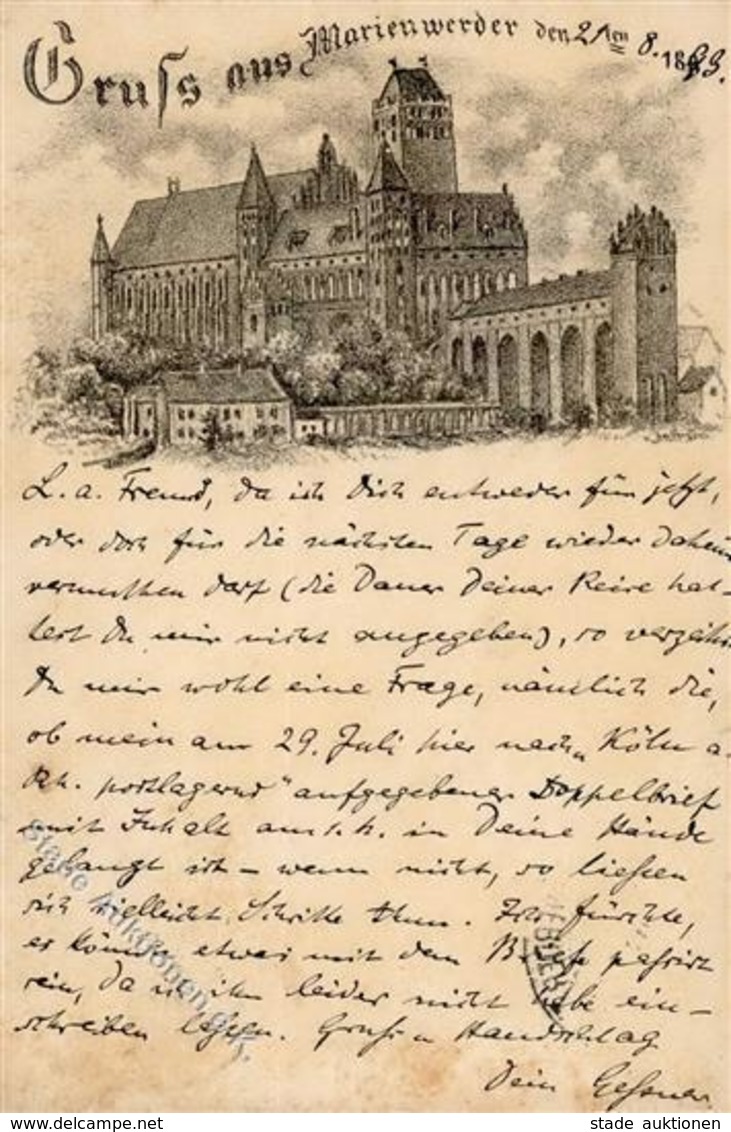 Gruss aus Marienwerder den 21ten 8. 1893.
L. a. Freund, da ich Dich entweder für jetzt,
oder doch für die nächsten Tage wieder daheim
vermuthen darf (die Dauer Deiner Reise hat-
test Du mir nicht angegeben), so verzeihe
Du mir wohl eine Frage, nämlich die,
ob mein am 29. Juli hier nach „Köln a.
Rh. postlagernd" aufgegebener Doppelbrief
mit Inhalt am in Deine Hände
gelangt ist – wenn nicht, so liessen
sich vielleicht Schritte thun. Ich fürchte,
es könnte etwas mit dem Briefe passirt
sein, da ich ihn leider nicht habe ein-
schreiben lassen. Gruß u Handschlag
Dein Geßner.
stade auktionen
stade auktionen